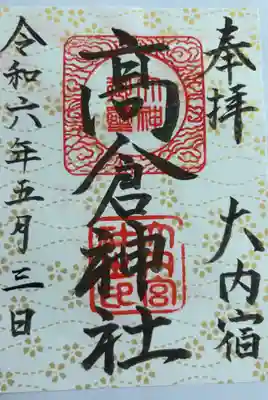 奉拝 大内宿
髙倉神社
令和六年五月三日